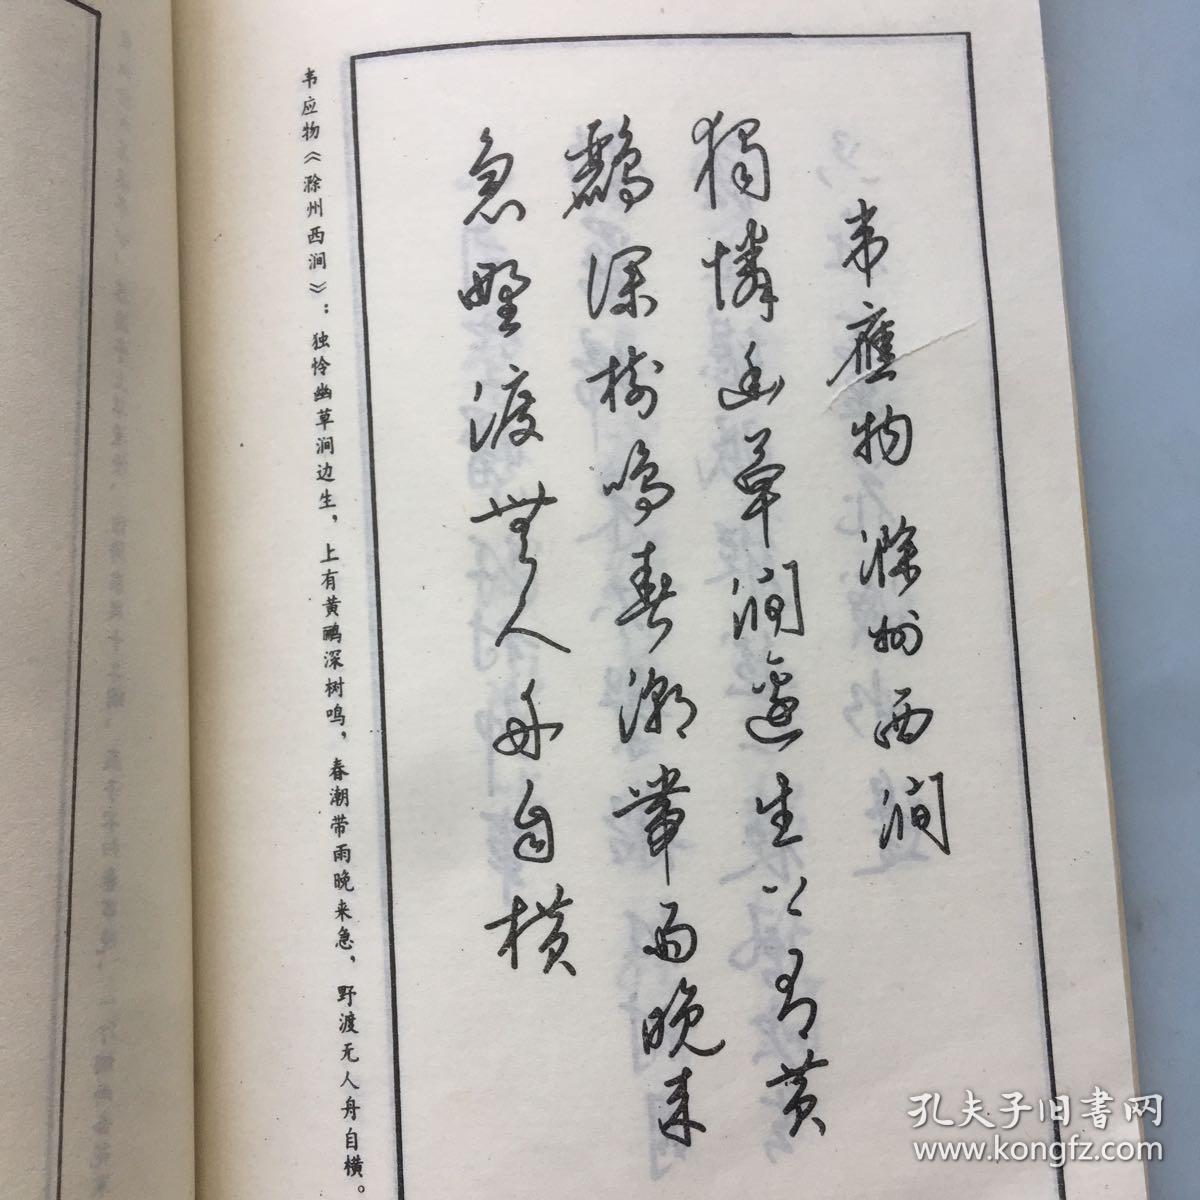 韦應物 滁州西澗
獨憐幽草澗邊生上有黄
鸝深樹鳴春潮帶雨晚来
急野渡無人舟自橫
韦应物《滁州西涧》：独怜幽草涧边生，上有黄鹂深树鸣，春潮带雨晚来急，野渡无人舟自横。
孔夫子旧書网
www.kongfz.com